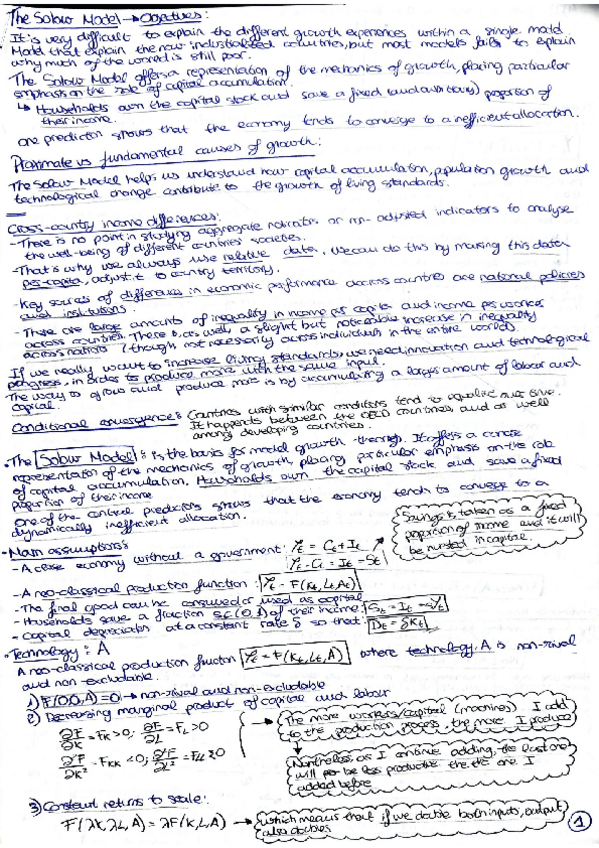 The Solow Model → Objectives:
It is very difficult to explain the different growth experiences within a single model
Model that explain the new industrialised countries, but most models fails to explain
why much of the world is still poor.
The Solow Model offers a representation of the mechanics of growth, placing particular
emphasis on the role of capital accumulation.
↳ Households own the capital stock and save a fixed (and arbitrary) proportion of
their income.
One prediction shows that the economy tends to converge to a inefficient allocation.
Proximate vs fundamental causes of growth:
The Solow Model helps us understand how capital accumulation, population growth and
technological change contribute to the growth of living standards.
Cross-country income differences:
- There is no point in studying aggregate indicators or non-adjusted indicators to analyse
the well-being of different countries' societies.
- That's why we always use relative data. We can do this by making this data
per-capita, adjust it to country territory.
- Key sources of differences in economic performance across countries are national policies
and institutions.
- There are large amounts of inequality in income per capita and income per worker
across countries. There is, as well, a slight but noticeable increase in inequality
across nations (though not necessarily across individuals in the entire world).
If we really want to increase living standards, we need innovation and technological
progress, in order to produce more with the same input.
The way to grow and produce more is by accumulating a larger amount of labour and
capital.
Conditional convergence: Countries with similar conditions tend to equalise over time.
It happens between the OECD countries and as well
among developing countries.
• The Solow Model: is the basis for model growth theory. It offers a concise
representation of the mechanics of growth, placing particular emphasis on the role
of capital accumulation. Households own the capital stock and save a fixed
proportion of their income
One of the central predictions shows that the economy tends to converge to a
dynamically inefficient allocation.
Savings is taken as a fixed
proportion of income and it will
be invested in capital.
• Main assumptions:
- A close economy without a government: Yt = Ct + It
Yt - Ct = It = St
- A neo-classical production function: Yt = F(Kt, Lt, At)
- The final good can be consumed or used as capital
- Households save a fraction s∈(0,1) of their income: St = It = sYt
- Capital depreciates at a constant rate δ so that: Dt = δKt
• Technology: A
A neo-classical production function Yt = F(Kt, Lt, A) where technology, A is non-rival
and non-excludable.
1) F(0,0,A)=0 → non-rival and non-excludable
2) Decreasing marginal product of capital and labour
∂F/∂K = FK > 0; ∂F/∂L = FL > 0
∂²F/∂K² = FKK < 0; ∂²F/∂L² = FLL
The more workers/capital (machines) I add
to the production process, the more I produce
Nonetheless, as I continue adding, the last one
will be less productive the the one I
added before
3) Constant returns to scale:
F(λK, λL, A) = λF(K, L, A) → which means that if we double both inputs, output
also doubles
1